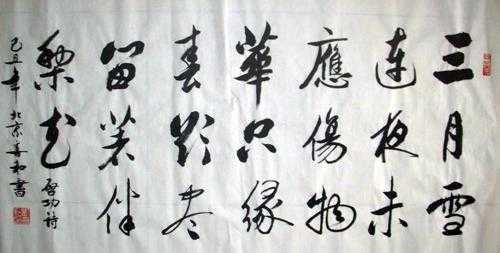 三月雪
連夜未
應傷物
華只緣
春欲盡
留著伴
梨花
啓功詩
己丑年北京和書